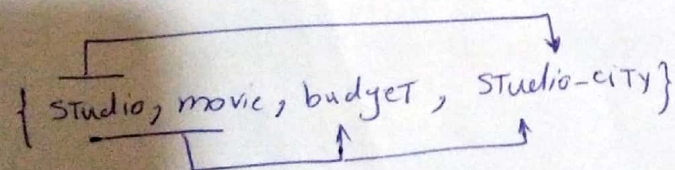 { Studio, movie, budget, Studio-city}